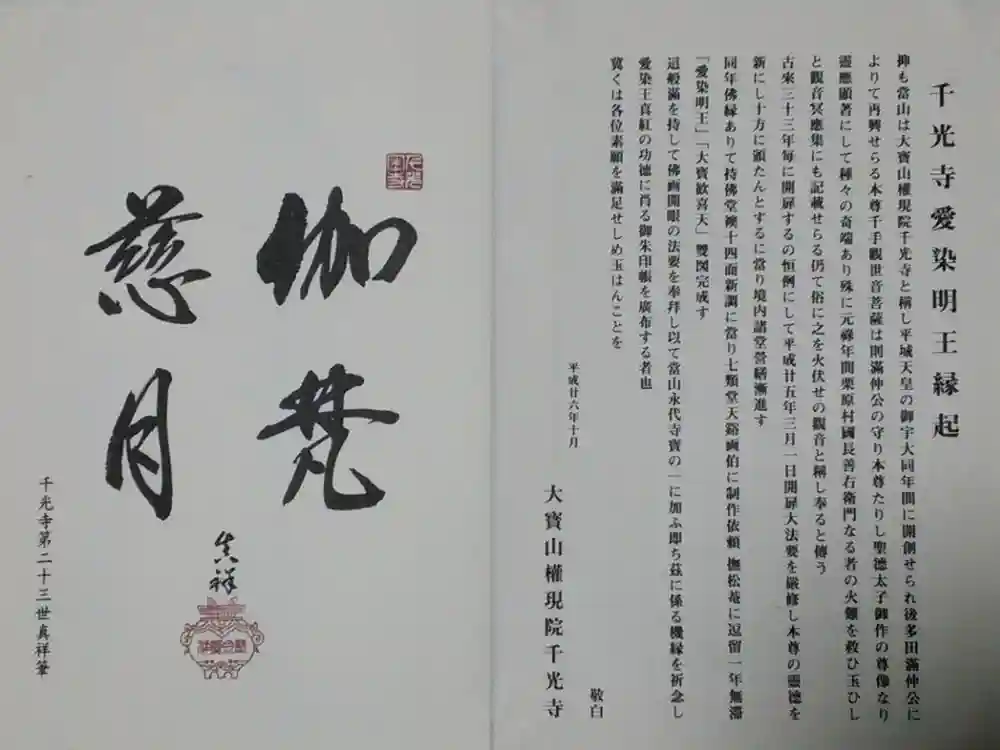 千光寺愛染明王縁起
抑も當山は大寶山權現院千光寺と稱し平城天皇の御宇大同年間に開創せられ後多田滿仲公に
よりて再興せらる本尊千手觀世音菩薩は則滿仲公の守り本尊たりし聖德太子御作の尊像なり
靈應顯著にして種々の奇端あり殊に元祿年間栗原村國長善右衛門なる者の火難を救ひ玉ひし
と觀音冥應集にも記載せらる仍て俗に之を火伏せの觀音と稱し奉ると傳う
古來三十三年毎に開扉するの恒例にして平成廿五年三月一日開扉大法要を厳修し本尊の靈徳を
新にし十方に頒たんとするに當り境内諸堂營繕漸進す
同年佛縁ありて持佛堂襖十四面新調に當り七類堂天谿画伯に制作依頼 撫松菴に逗留一年無滞
「愛染明王」「大寶歓喜天」雙図完成す
這般滿を持して佛画開眼の法要を奉拜し以て當山永代寺寶の一に加ふ即ち茲に係る機縁を祈念し
愛染王真紅の功徳に肖る御朱印帳を廣布する者也
冀くは各位素願を滿足せしめ玉はんことを
平成廿六年十月
敬白
大寶山權現院千光寺
伽梵
慈月
真祥
千光寺第二十三世真祥筆